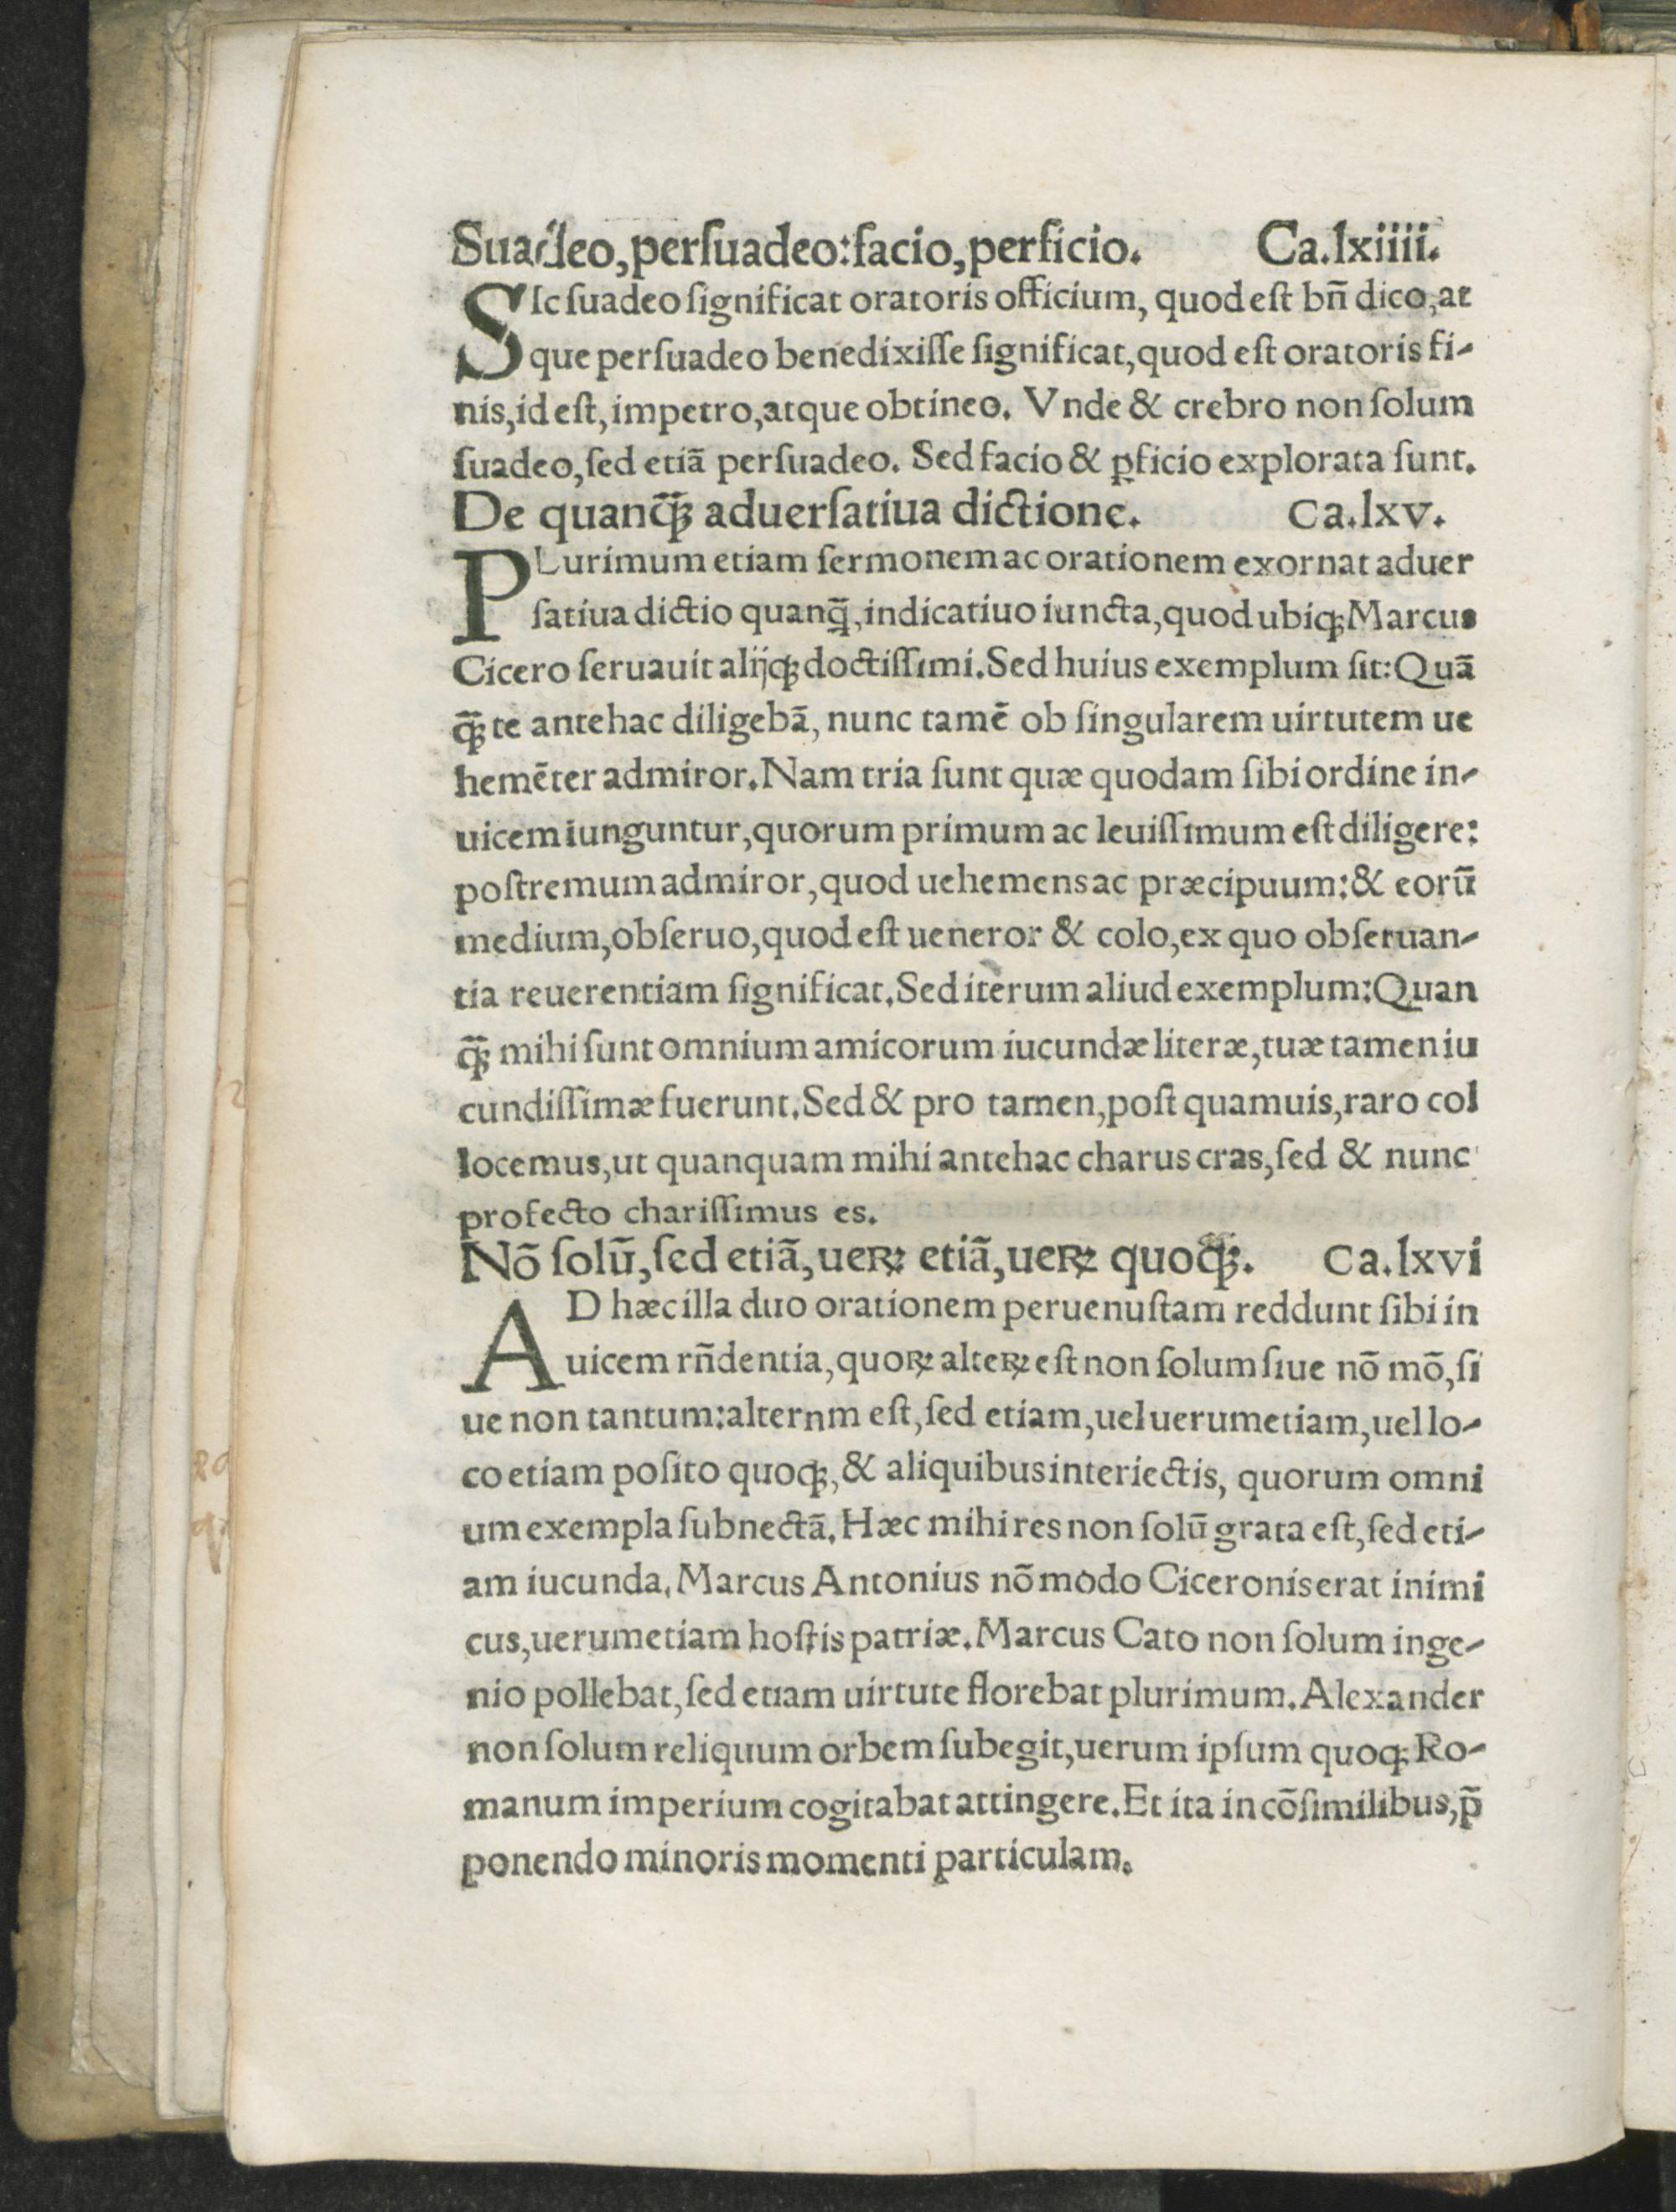 Suadeo,perſuadeo:facio,perficio. Ca.lxiiii.
SIc ſuadeo ſignificat oratoris officium, quod eſt bñ dico,at
que perſuadeo benedixiſſe ſignificat,quod eſt oratoris fi-
nis,id eſt,impetro,atque obtineo. Vnde & crebro non ſolum
ſuadeo,ſed etiã perſuadeo. Sed facio & ꝑficio explorata ſunt.
De quanq̃ꝫ aduerſatiua dictione. Ca.lxv.
PLurimum etiam ſermonem ac orationem exornat aduer
ſatiua dictio quanq̃,indicatiuo iuncta,quod ubiqꝫ Marcus
Cicero ſeruauit alijqꝫ doctiſſimi.Sed huius exemplum ſit:Quã
q̃ꝫ te antehac diligebã, nunc tamẽ ob ſingularem uirtutem ue
hemẽter admiror.Nam tria ſunt quæ quodam ſibi ordine in-
uicem iunguntur,quorum primum ac leuiſſimum eſt diligere:
poſtremum admiror,quod uehemens ac præcipuum:& eorũ
medium,obſeruo,quod eſt ueneror & colo,ex quo obſeruan-
tia reuerentiam ſignificat.Sed iterum aliud exemplum:Quan
q̃ꝫ mihi ſunt omnium amicorum iucundæ literæ,tuæ tamen iu
cundiſſimæ fuerunt.Sed & pro tamen,poſt quamuis,raro col
locemus,ut quanquam mihi antehac charus eras,ſed & nunc
profecto chariſſimus es.
Nõ ſolũ,ſed etiã,ueꝝ etiã,ueꝝ quoqꝫ. Ca.lxvi
AD hæc illa duo orationem peruenuſtam reddunt ſibi in
uicem rñdentia,quoꝝ alteꝝ eſt non ſolum ſiue nõ mõ,ſi
ue non tantum:alternm eſt,ſed etiam,uel uerumetiam,uel lo-
co etiam poſito quoqꝫ,& aliquibus interiectis, quorum omni
um exempla ſubnectã.Hæc mihi res non ſolũ grata eſt,ſed eti-
am iucunda.Marcus Antonius nõ modo Ciceronis erat inimi
cus,uerumetiam hoſtis patriæ.Marcus Cato non ſolum inge-
nio pollebat,ſed etiam uirtute florebat plurimum.Alexander
non ſolum reliquum orbem ſubegit,uerum ipſum quoqꝫ Ro-
manum imperium cogitabat attingere.Et ita in cõſimilibus,p̃
ponendo minoris momenti particulam.